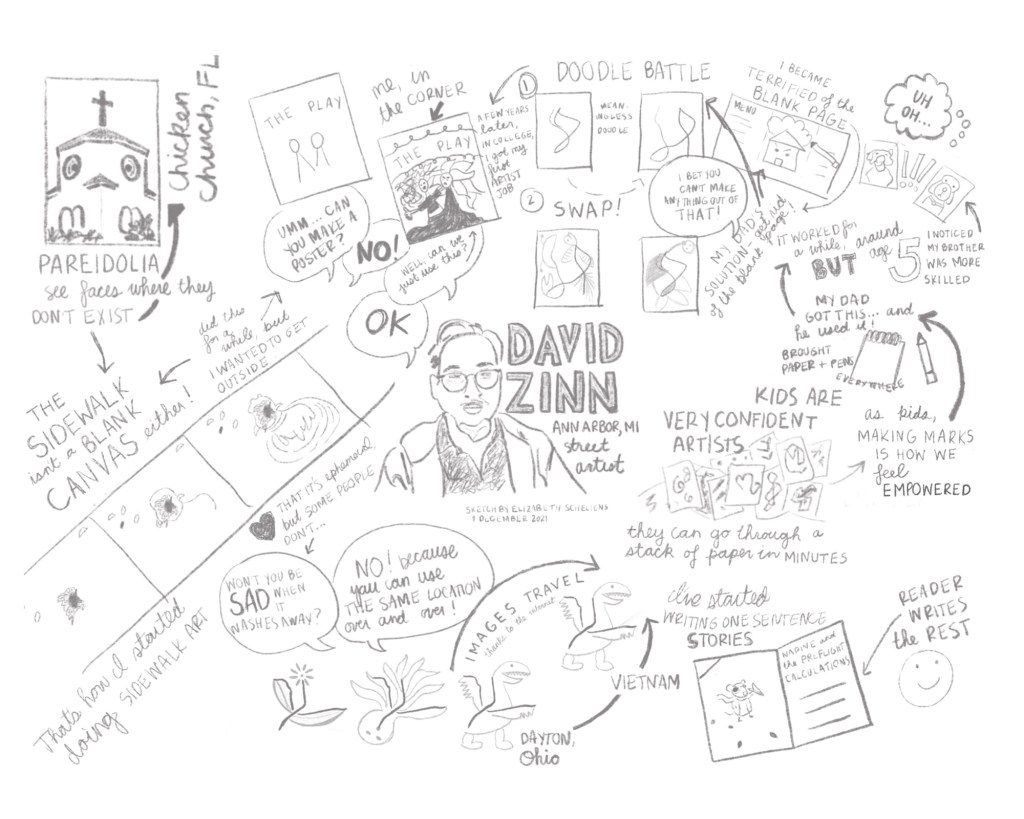 DAVID
ZINN
ANN ARBOR, MI
street
artist
SKETCH BY ELIZABETH SCHELIENS
1 DECEMBER 2021
KIDS ARE
VERY CONFIDENT
ARTISTS
they can go through a
stack of paper in MINUTES
as kids,
MAKING MARKS
IS HOW WE
feel
EMPOWERED
MY DAD
GOT THIS... and
he used it!
BROUGHT
PAPER + PENS
EVERYWHERE
IT WORKED for
a while,
BUT
around
age
5
I NOTICED
MY BROTHER
WAS MORE
SKILLED
UH
OH...
!!!!
I BECAME
TERRIFIED of the
BLANK PAGE
MENU
MY DAD'S
SOLUTION - get rid
of the blank page!
DOODLE BATTLE
1
MEAN-
INGLESS
DOODLE
I BET YOU
CAN'T MAKE
ANYTHING OUT OF
THAT!
2
SWAP!
A FEW YEARS
later,
IN COLLEGE,
I got my
first
ARTIST
JOB
me, in
the CORNER
THE PLAY
THE PLAY
UMM... CAN
YOU MAKE A
POSTER?
NO!
WELL, can we
just use this?
OK
did this
for a
while, but
I WANTED TO GET
OUTSIDE
Chicken
Church, FL
PAREIDOLIA
see faces where they
DON'T EXIST
THE
SIDEWALK
isn't a BLANK
CANVAS either!
That's how I started
doing SIDEWALK ART
THAT IT'S ephemeral
but SOME PEOPLE
DON'T...
WON'T YOU BE
SAD WHEN
IT
WASHES AWAY?
NO! because
you can use
THE SAME LOCATION
over and over!
IMAGES TRAVEL
thanks to the internet
DAYTON,
Ohio
VIETNAM
I've started
WRITING ONE SENTENCE
STORIES
NADINE and
the PREFLIGHT
CALCULATIONS
READER
WRITES
the REST